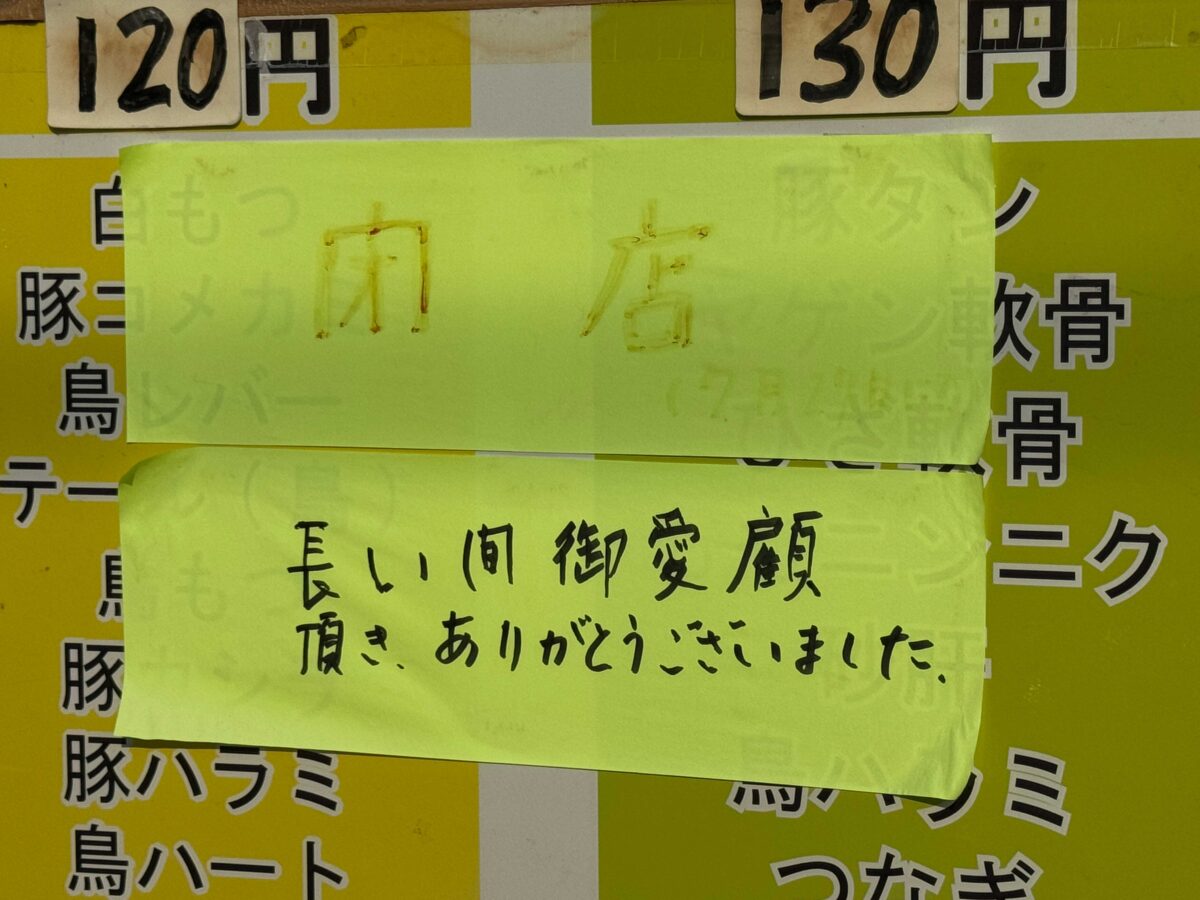 120円
130円
閉店
長い間御愛顧
頂き、ありがとうございました。
白もつ
豚コメカミ
鳥レバー
豚ハラミ
鳥ハート
豚タン
軟骨
軟骨
ニンニク
鳥ハラミ
つなぎ